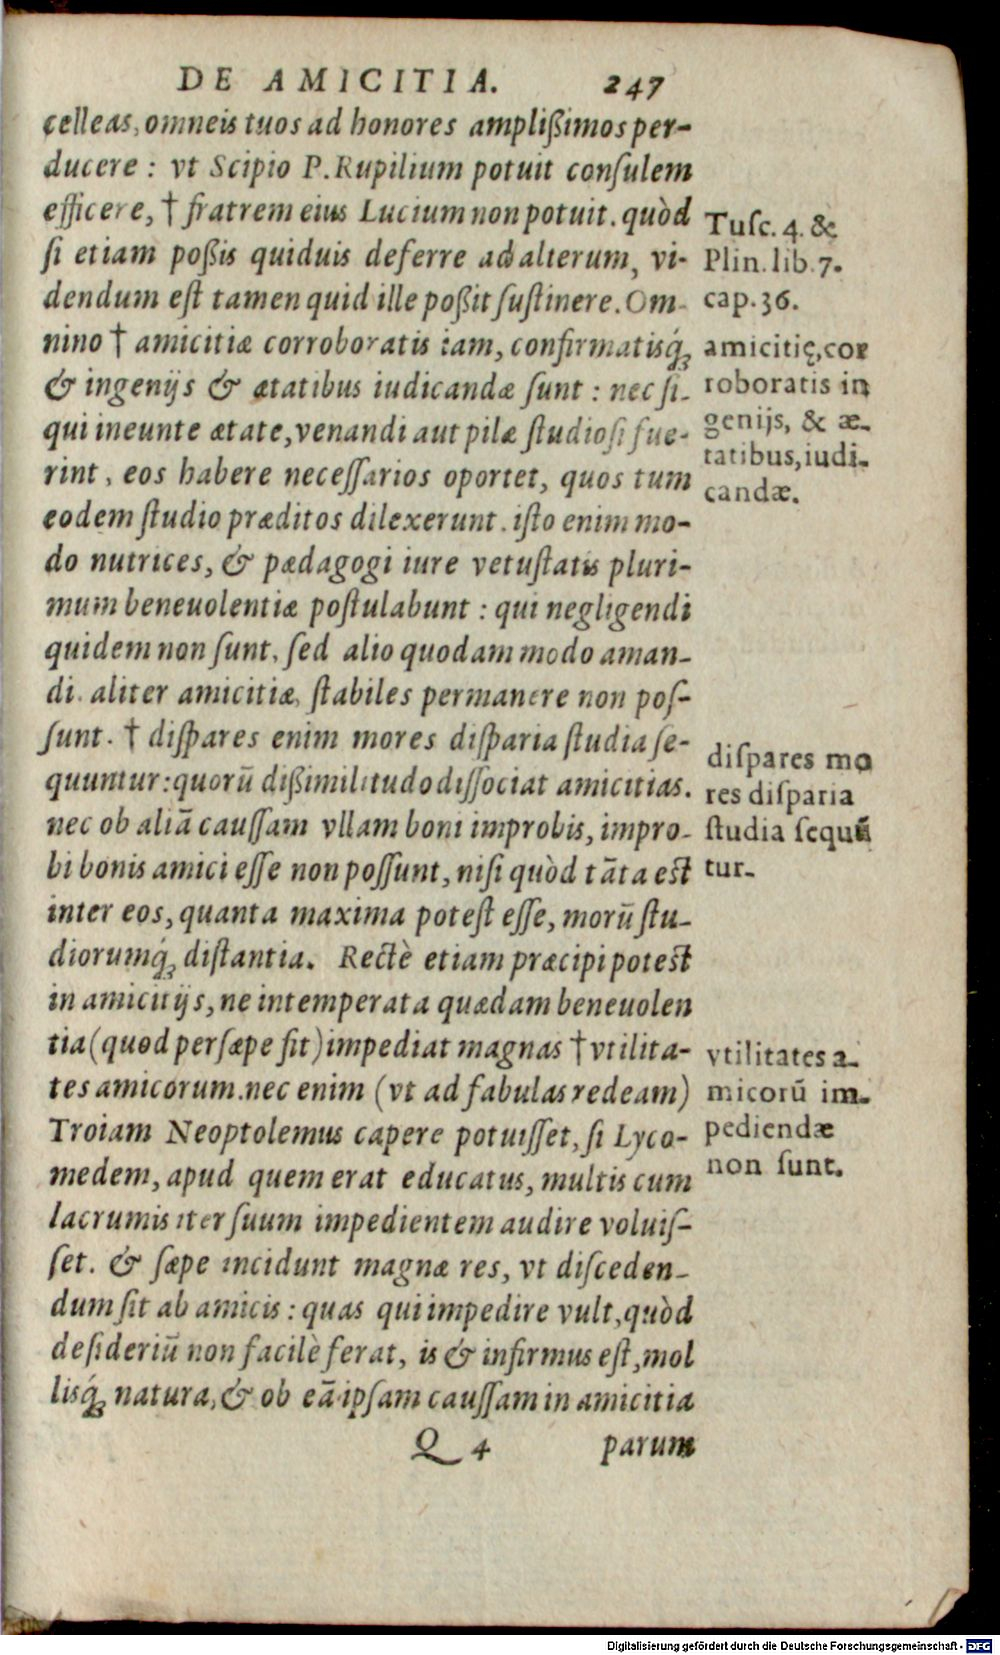 DE AMICITIA. 247
celleas, omneis tuos ad honores amplißimos per-
ducere : vt Scipio P. Rupilium potuit conſulem
efficere, † fratrem eius Lucium non potuit. quòd
ſi etiam poßis quiduis deferre ad alterum, vi-
dendum eſt tamen quid ille poßit ſuſtinere. Om-
nino † amicitiæ corroboratis iam, confirmatisq́;
& ingenijs & ætatibus iudicandæ ſunt : nec ſi-
qui ineunte ætate, venandi aut pilæ ſtudioſi fue-
rint, eos habere neceſſarios oportet, quos tum
eodem ſtudio præditos dilexerunt. iſto enim mo-
do nutrices, & pædagogi iure vetuſtatis pluri-
mum beneuolentiæ poſtulabunt : qui negligendi
quidem non ſunt, ſed alio quodam modo aman-
di. aliter amicitiæ, ſtabiles permanere non poſ-
ſunt. † diſpares enim mores diſparia ſtudia ſe-
quuntur: quorū dißimilitudo diſſociat amicitias.
nec ob aliā cauſſam vllam boni improbis, impro-
bi bonis amici eſſe non poſſunt, niſi quòd tāta eſt
inter eos, quanta maxima poteſt eſſe, morū ſtu-
diorumq́; diſtantia. Rectè etiam præcipi poteſt
in amicitijs, ne intemperata quædam beneuolen
tia (quod perſæpe fit) impediat magnas † vtilita-
tes amicorum. nec enim (vt ad fabulas redeam)
Troiam Neoptolemus capere potuiſſet, ſi Lyco-
medem, apud quem erat educatus, multis cum
lacrumis iter ſuum impedientem audire voluiſ-
ſet. & ſæpe incidunt magnæ res, vt diſceden-
dum ſit ab amicis : quas qui impedire vult, quòd
deſideriū non facilè ferat, is & infirmus eſt, mol
lisq́; natura, & ob eā ipſam cauſſam in amicitia
Q 4 parum
Tuſc. 4. &
Plin. lib. 7.
cap. 36.
amicitię, cor
roboratis in
genijs, & æ-
tatibus, iudi-
candæ.
diſpares mo
res diſparia
ſtudia ſequū
tur.
vtilitates a-
micorū im-
pediendæ
non ſunt.
Digitalisierung gefördert durch die Deutsche Forschungsgemeinschaft - DFG